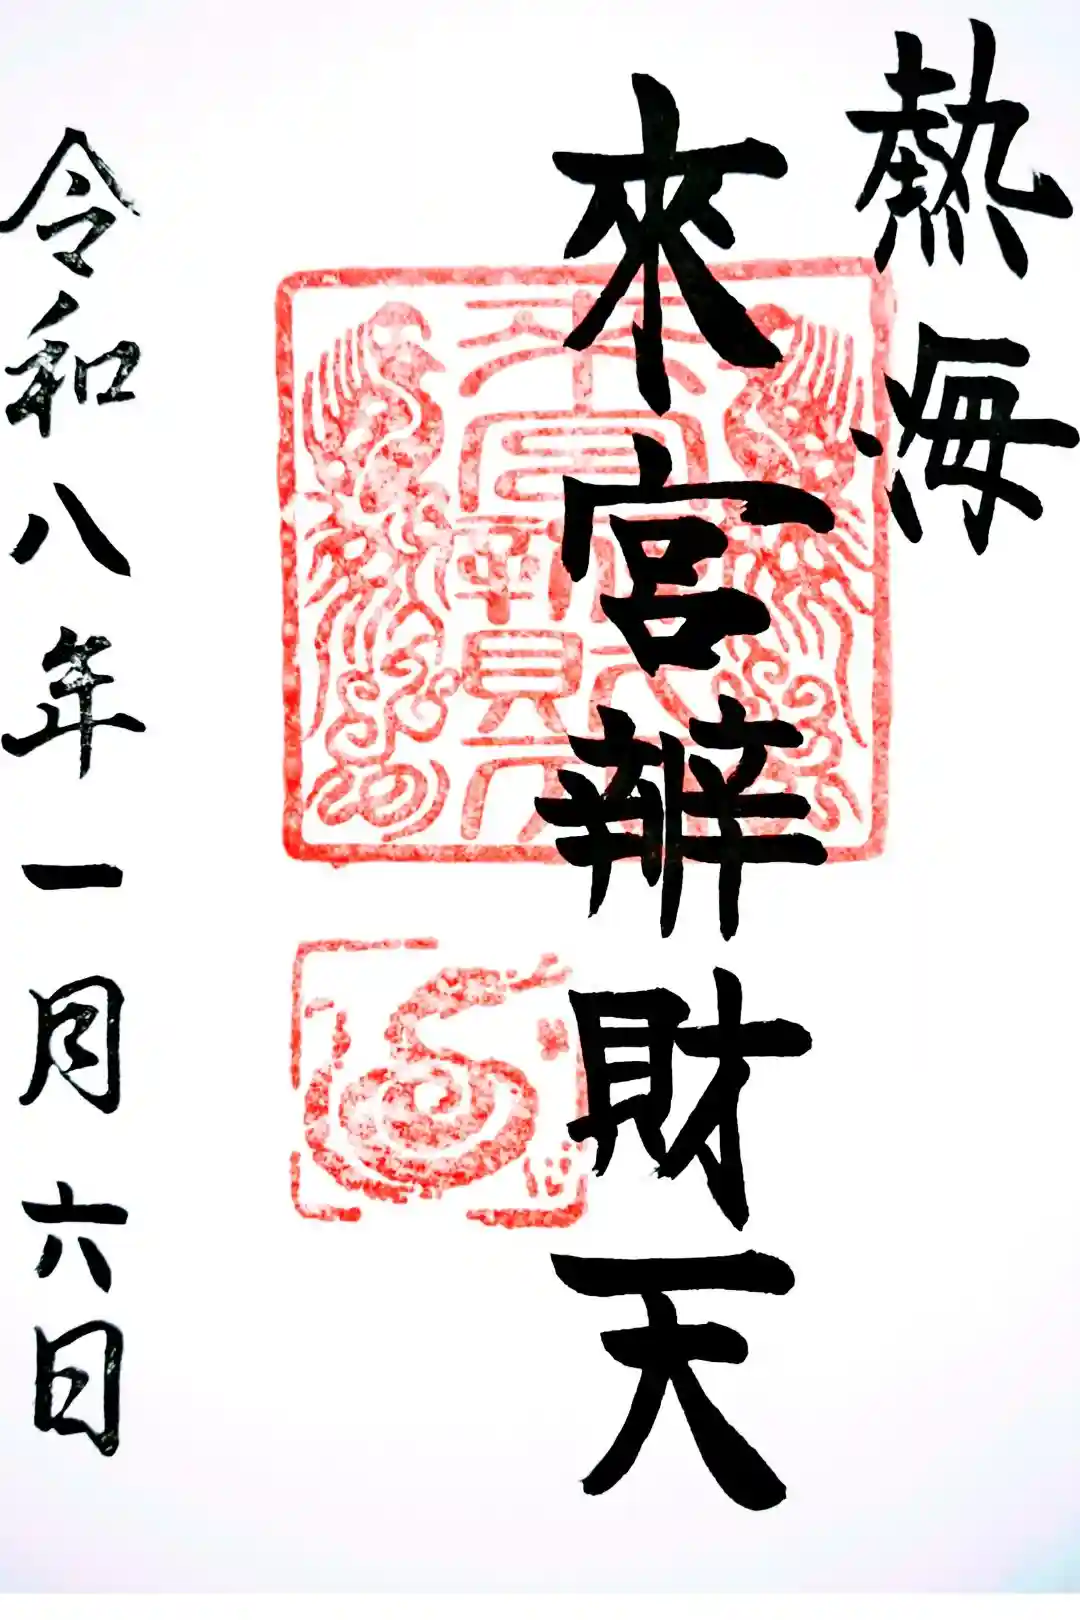 熱海
來宮辨財天
令和八年一月六日